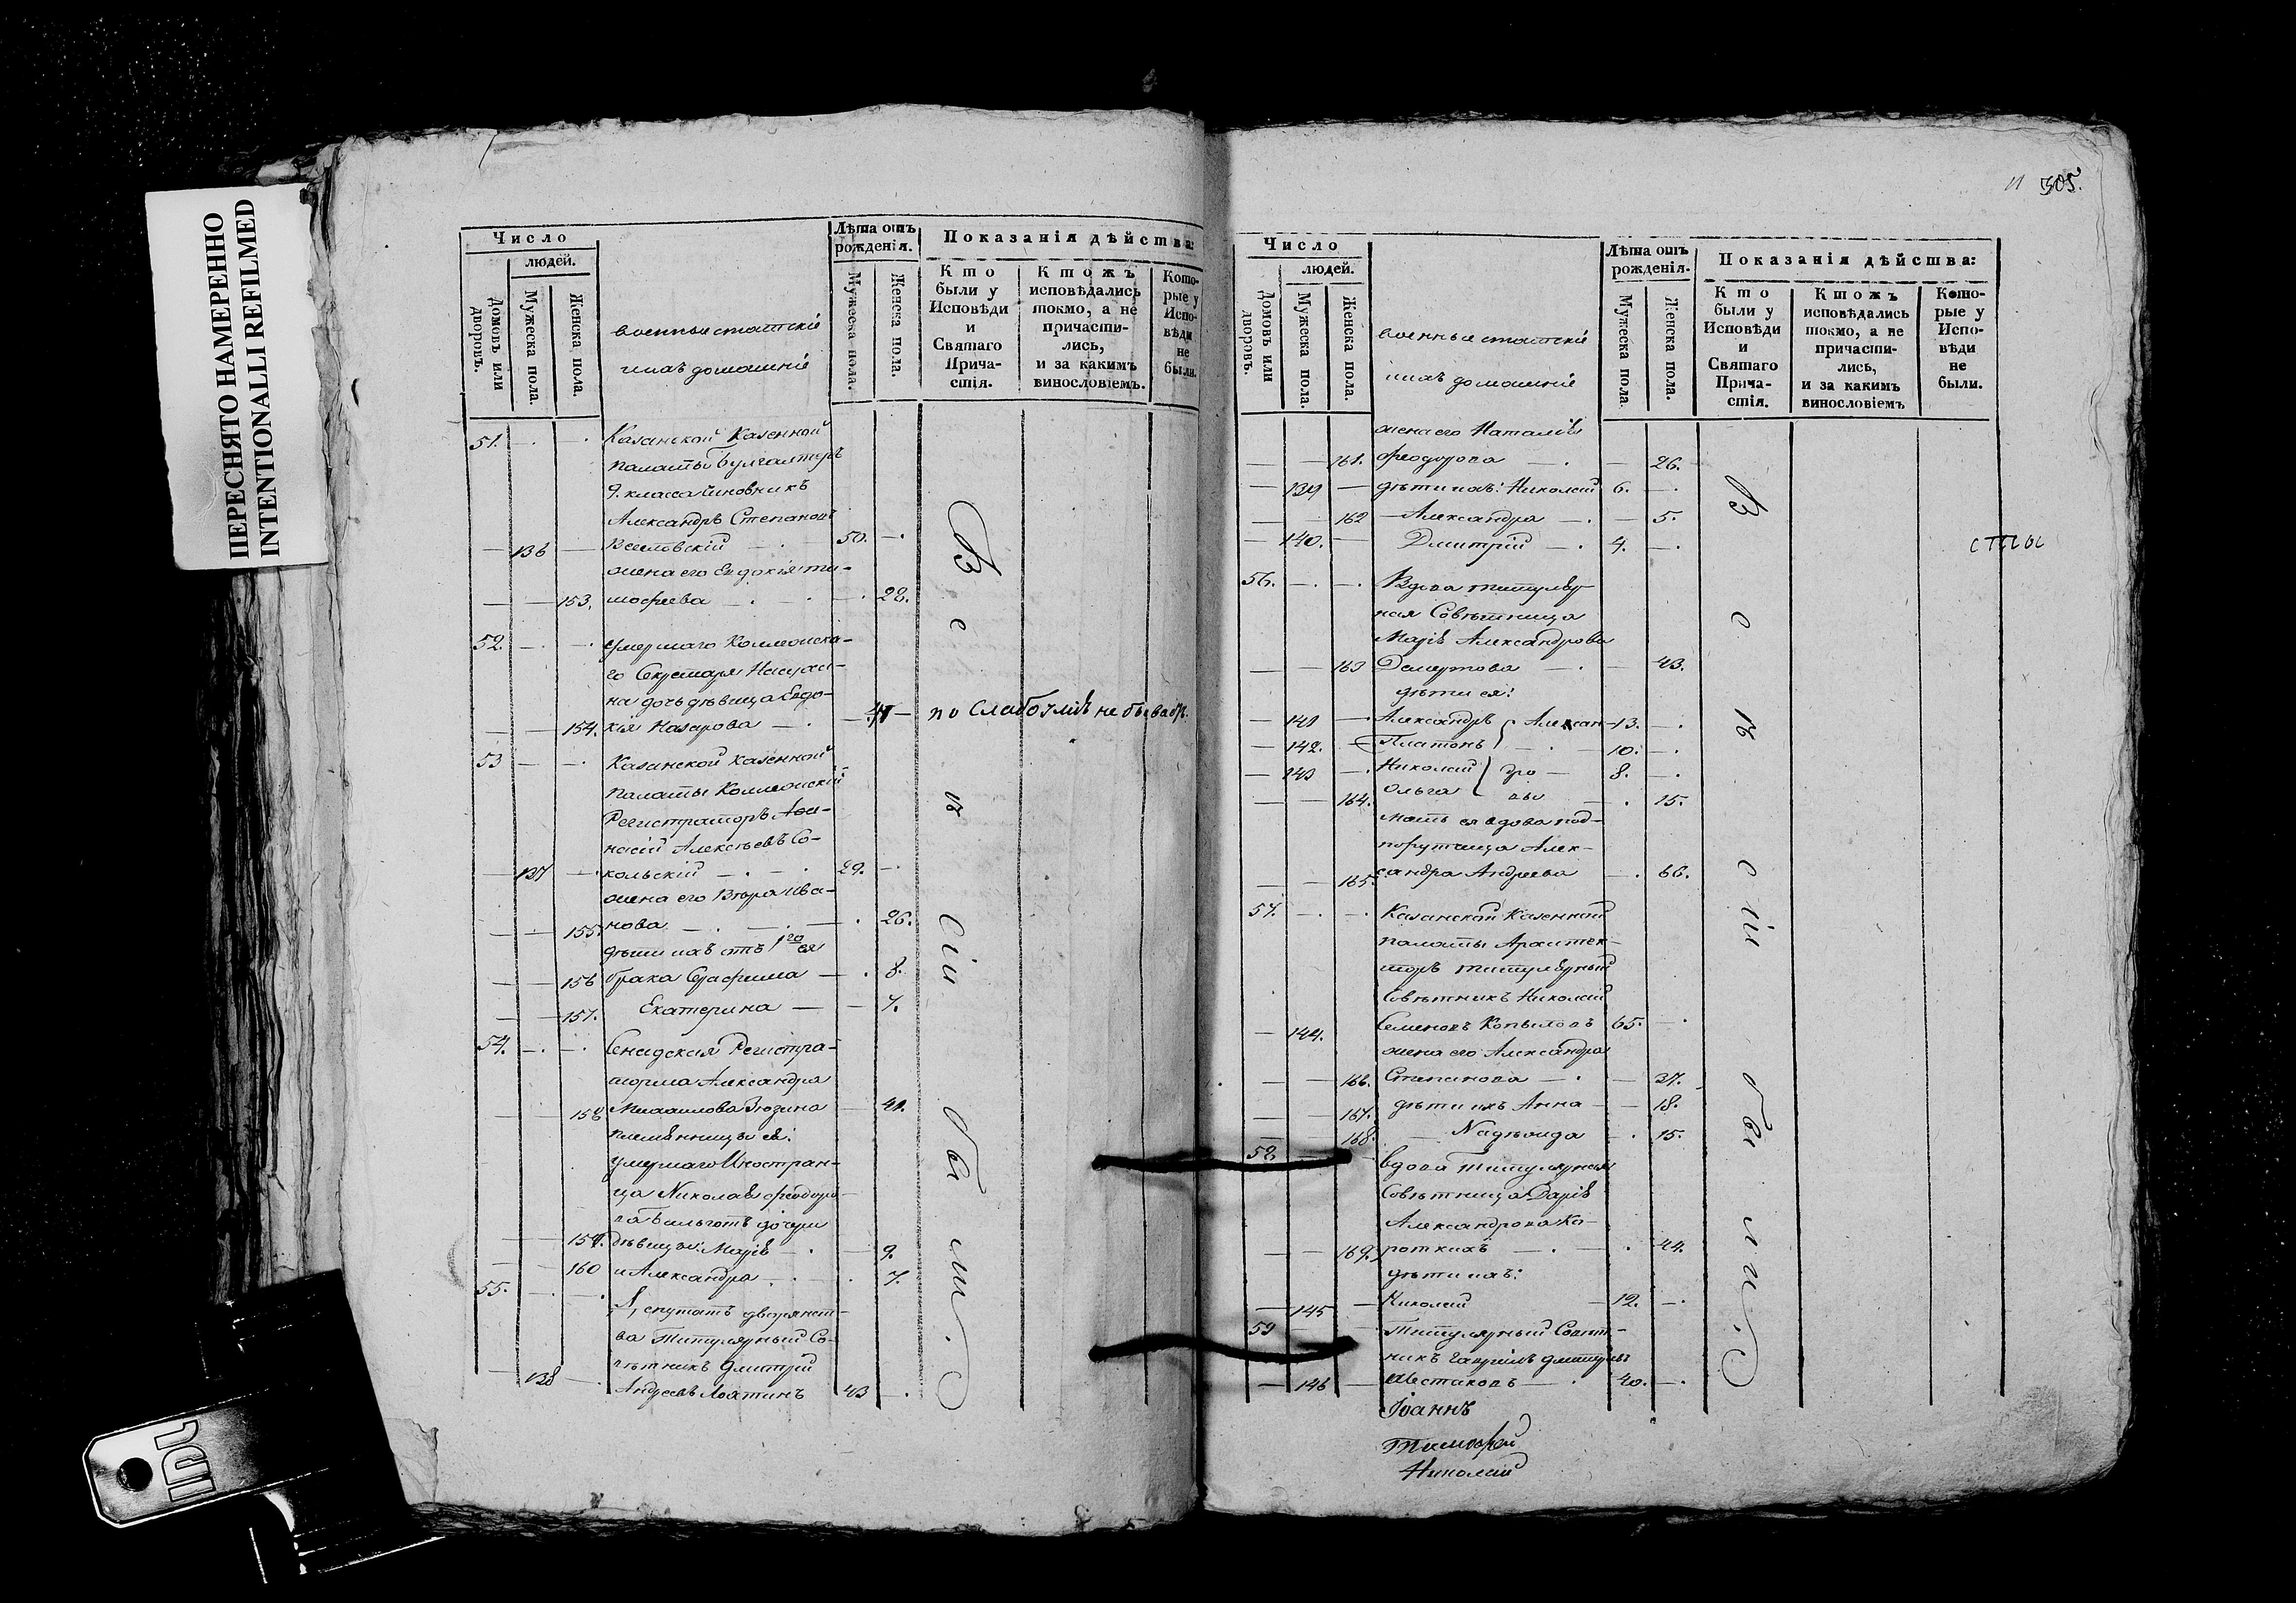 ПЕРЕСНЯТО НАМЕРЕННО
INTENTIONALLI REFILMED
305.
Число
людей.
Домовъ или дворовъ.
Мужеска пола.
Женска пола.
военные статскіе
ихъ домашніе
Лѣта отъ рожденія.
Мужеска пола.
Женска пола.
Показанія дѣйства:
Кто были у Исповѣди и Святаго Причастія.
Ктожъ исповѣдались токмо, а не причастились, и за какимъ винословіемъ.
Которые у Исповѣди не были.
51. Казанской Казенной
палаты Бухгалтеръ
9. класса Чиновникъ
Александръ Степановъ
136 50.
жена его Евдокія Ти-
153. мофеева 28.
52. умершаго Коллежска-
го Секретаря
на дочь дѣвица Евдо-
154. кія Назарова по слабоумію не бывавъ.
53 Казанской Казенной
палаты Коллежскій
Регистраторъ Афа-
насій Алексѣевъ Со-
137 кольскій 29.
жена его Вѣра Ива-
155. нова 26.
дѣти ихъ отъ 1го ея
156 брака Серафима 8.
157. Екатерина 7.
54. Сенатская Регистра-
торша Александра
158 Михаилова Зюзина 41.
племянницы ея:
умершаго Иностран-
ца Николая Феодоро-
ва дочери
159. дѣвицы: Марія 9.
160 и Александра 7.
55. Депутатъ дворянст-
ва Титулярный Со-
вѣтникъ Дмитрій
138 Андреевъ 43
Всѣ сіи были.
Число
людей.
Домовъ или дворовъ.
Мужеска пола.
Женска пола.
военные статскіе
ихъ домашніе
Лѣта отъ рожденія.
Мужеска пола.
Женска пола.
Показанія дѣйства:
Кто были у Исповѣди и Святаго Причастія.
Ктожъ исповѣдались токмо, а не причастились, и за какимъ винословіемъ
Которые у Исповѣди не были.
жена его Наталія
161. Феодорова 26.
139 дѣти ихъ: Николай 6.
162 Александра 5.
140. Дмитрій 4.
56. Вдова титуляр-
ная Совѣтница
Марія Александрова
163 43.
дѣти ея:
141 Александръ Алексан- 13.
142. Платонъ 10.
143 Николай дро 8.
164. Ольга вы 15.
мать ея вдова под-
порутчица Алек-
165. сандра Андреева 66.
57. Казанской Казенной
палаты Архитек-
торъ титулярный
Совѣтникъ Николай
144. Семеновъ Копыловъ 65.
жена его Александра
166. Степанова 37.
167. дѣти ихъ Анна 18.
168. Надежда 15.
58. вдова Титулярная
Совѣтница Дарія
Александрова Ко-
169. роткихъ 44.
дѣти ихъ:
145 Николай 12.
59 Титулярный Совѣт-
никъ Гавріилъ Дмитріевъ
146 Шестаковъ 40.
Всѣ сіи были.
Іоаннъ
Тимофей
Николай